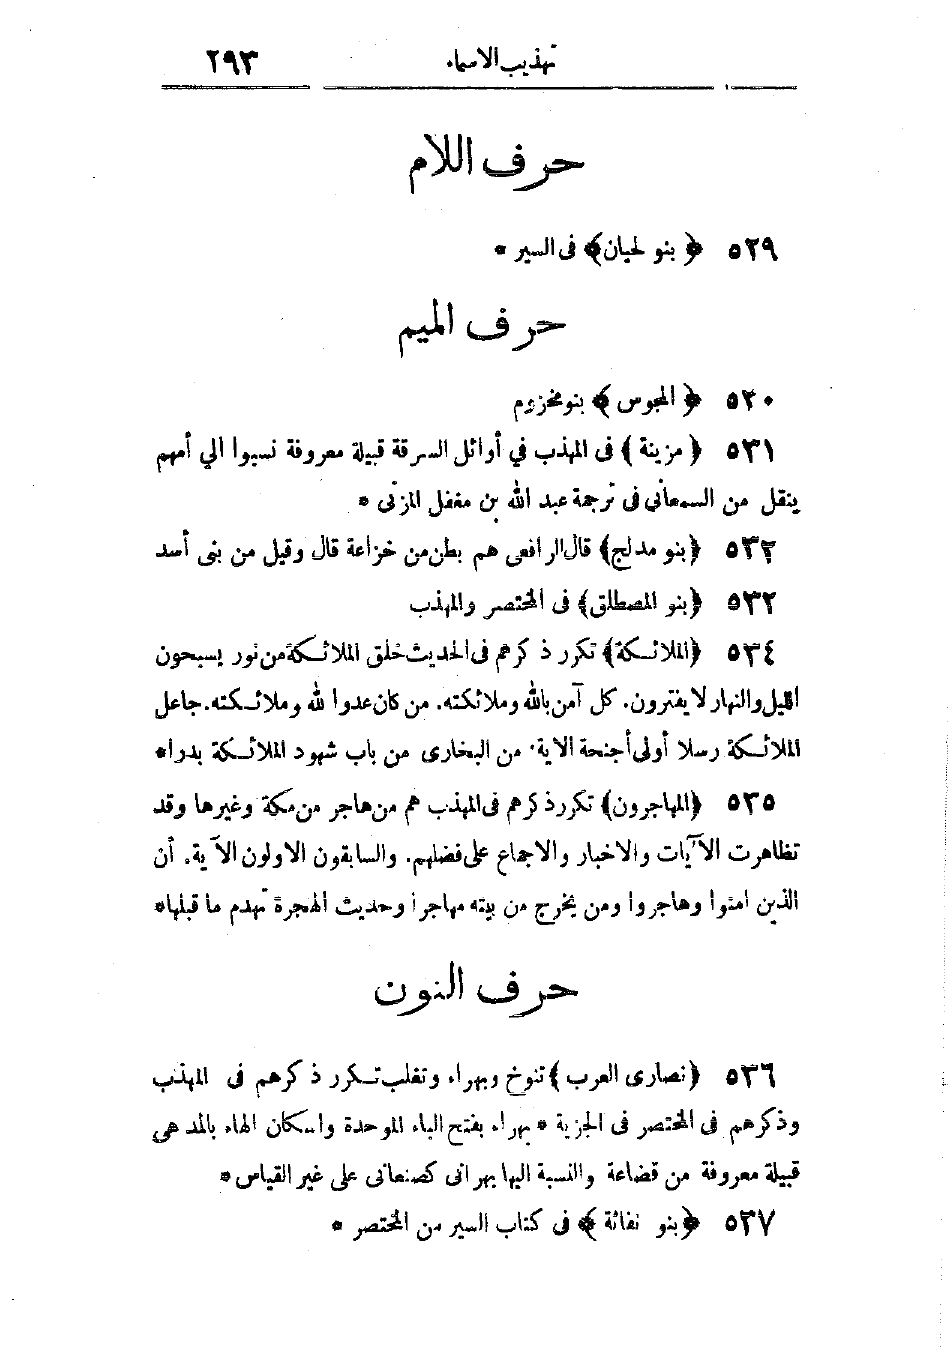 تهذيب الاسماء ٢٩٣
حرف اللام
٥٢٩ ﴿ بنو لحيان﴾ فى السير *
حرف الميم
٥٣٠ ﴿ المجوس ﴾ بنو مخزوم
٥٣١ ﴿ مزينة ﴾ فى المهذب في أوائل السرقة قبيلة معروفة نسبوا الي أمهم
ينقل من السمعانى فى ترجمة عبد الله بن مغفل المزنى *
٥٣٢ ﴿بنو مدلج﴾ قال الرافعى هم بطن من خزاعة قال وقيل من بنى أسد
٥٣٣ ﴿بنو المصطلق﴾ فى المختصر والمهذب
٥٣٤ ﴿الملائكة﴾ تكرر ذكرهم فى الحديث خلق الملائكة من نور يسبحون
الليل والنهار لا يفترون. كل آمن بالله وملائكته. من كان عدوا لله وملائكته. جاعل
الملائكة رسلا أولى أجنحة الاية. من البخارى من باب شهود الملائكة بدرا*
٥٣٥ ﴿المهاجرون﴾ تكرر ذكرهم فى المهذب هم من هاجر من مكة وغيرها وقد
تظاهرت الآيات والاخبار والاجماع على فضلهم. والسابقون الاولون الآية. أن
الذين امنوا وهاجروا ومن يخرج من بيته مهاجرا وحديث الهجرة تهدم ما قبلها*
حرف النون
٥٣٦ ﴿نصارى العرب ﴾ تنوخ وبهراء وتغلب تكرر ذكرهم فى المهذب
وذكرهم فى المختصر فى الجزية * بهراء بفتح الباء الموحدة واسكان الهاء بالمد هى
قبيلة معروفة من قضاعة والنسبة اليها بهرانى كصنعانى على غير القياس *
٥٣٧ ﴿بنو نفاثة ﴾ فى كتاب السير من المختصر *